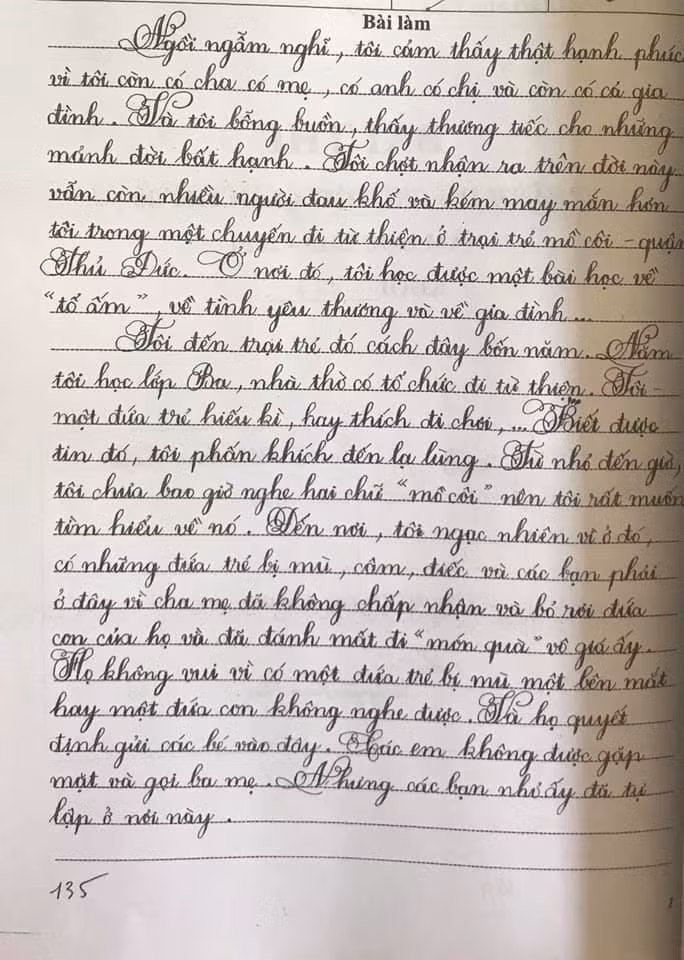 Bài làm
Ngồi ngẫm nghĩ, tôi cảm thấy thật hạnh phúc
vì tôi còn có cha có mẹ, có anh có chị và còn có cả gia
đình. Và tôi bỗng buồn, thấy thương tiếc cho những
mảnh đời bất hạnh. Tôi chợt nhận ra trên đời này
vẫn còn nhiều người đau khổ và kém may mắn hơn
tôi trong một chuyến đi từ thiện ở trại trẻ mồ côi - quận
Thủ Đức. Ở nơi đó, tôi học được một bài học về
"tổ ấm", về tình yêu thương và về gia đình...
Tôi đến trại trẻ đó cách đây bốn năm. Năm
tôi học lớp Ba, nhà thờ có tổ chức đi từ thiện. Tôi -
một đứa trẻ hiếu kì, hay thích đi chơi,... Biết được
tin đó, tôi phấn khích đến lạ lùng. Từ nhỏ đến giờ,
tôi chưa bao giờ nghe hai chữ "mồ côi" nên tôi rất muốn
tìm hiểu về nó. Đến nơi, tôi ngạc nhiên vì ở đó,
có những đứa trẻ bị mù, câm, điếc và các bạn phải
ở đây vì cha mẹ đã không chấp nhận và bỏ rơi đứa
con của họ và đã đánh mất đi "món quà" vô giá ấy.
Họ không vui vì có một đứa trẻ bị mù một bên mắt
hay một đứa con không nghe được. Và họ quyết
định gửi các bé vào đây. Các em không được gặp
mặt và gọi ba mẹ. Nhưng các bạn nhỏ ấy đã tự
lập ở nơi này.
135